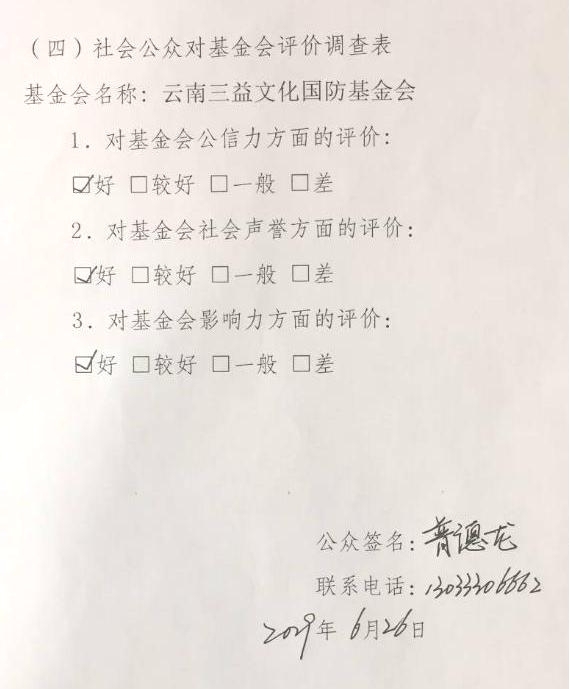 （四）社会公众对基金会评价调查表
基金会名称：云南三益文化国防基金会
1．对基金会公信力方面的评价：
☑好 □较好 □一般 □差
2．对基金会社会声誉方面的评价：
☑好 □较好 □一般 □差
3．对基金会影响力方面的评价：
☑好 □较好 □一般 □差
公众签名：普德龙
联系电话：13033306662
2019年6月26日